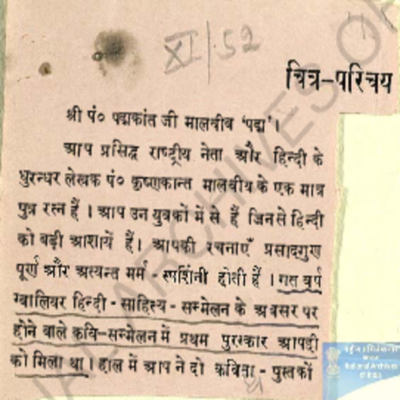 XI/52
चित्र-परिचय
श्री पं० पद्मकांत जी मालवीय 'पद्म'।
आप प्रसिद्ध राष्ट्रीय नेता और हिन्दी के
धुरन्धर लेखक पं० कृष्णकान्त मालवीय के एक मात्र
पुत्र रत्न हैं। आप उन युवकों में से हैं जिनसे हिन्दी
को बड़ी आशायें हैं। आपकी रचनाएँ प्रसादगुण
पूर्ण और अत्यन्त मर्म-स्पर्शिनी होती हैं। गत वर्ष
ग्वालियर हिन्दी-साहित्य-सम्मेलन के अवसर पर
होने वाले कवि-सम्मेलन में प्रथम पुरस्कार आपही
को मिला था। हाल में आप ने दो कविता-पुस्तकों